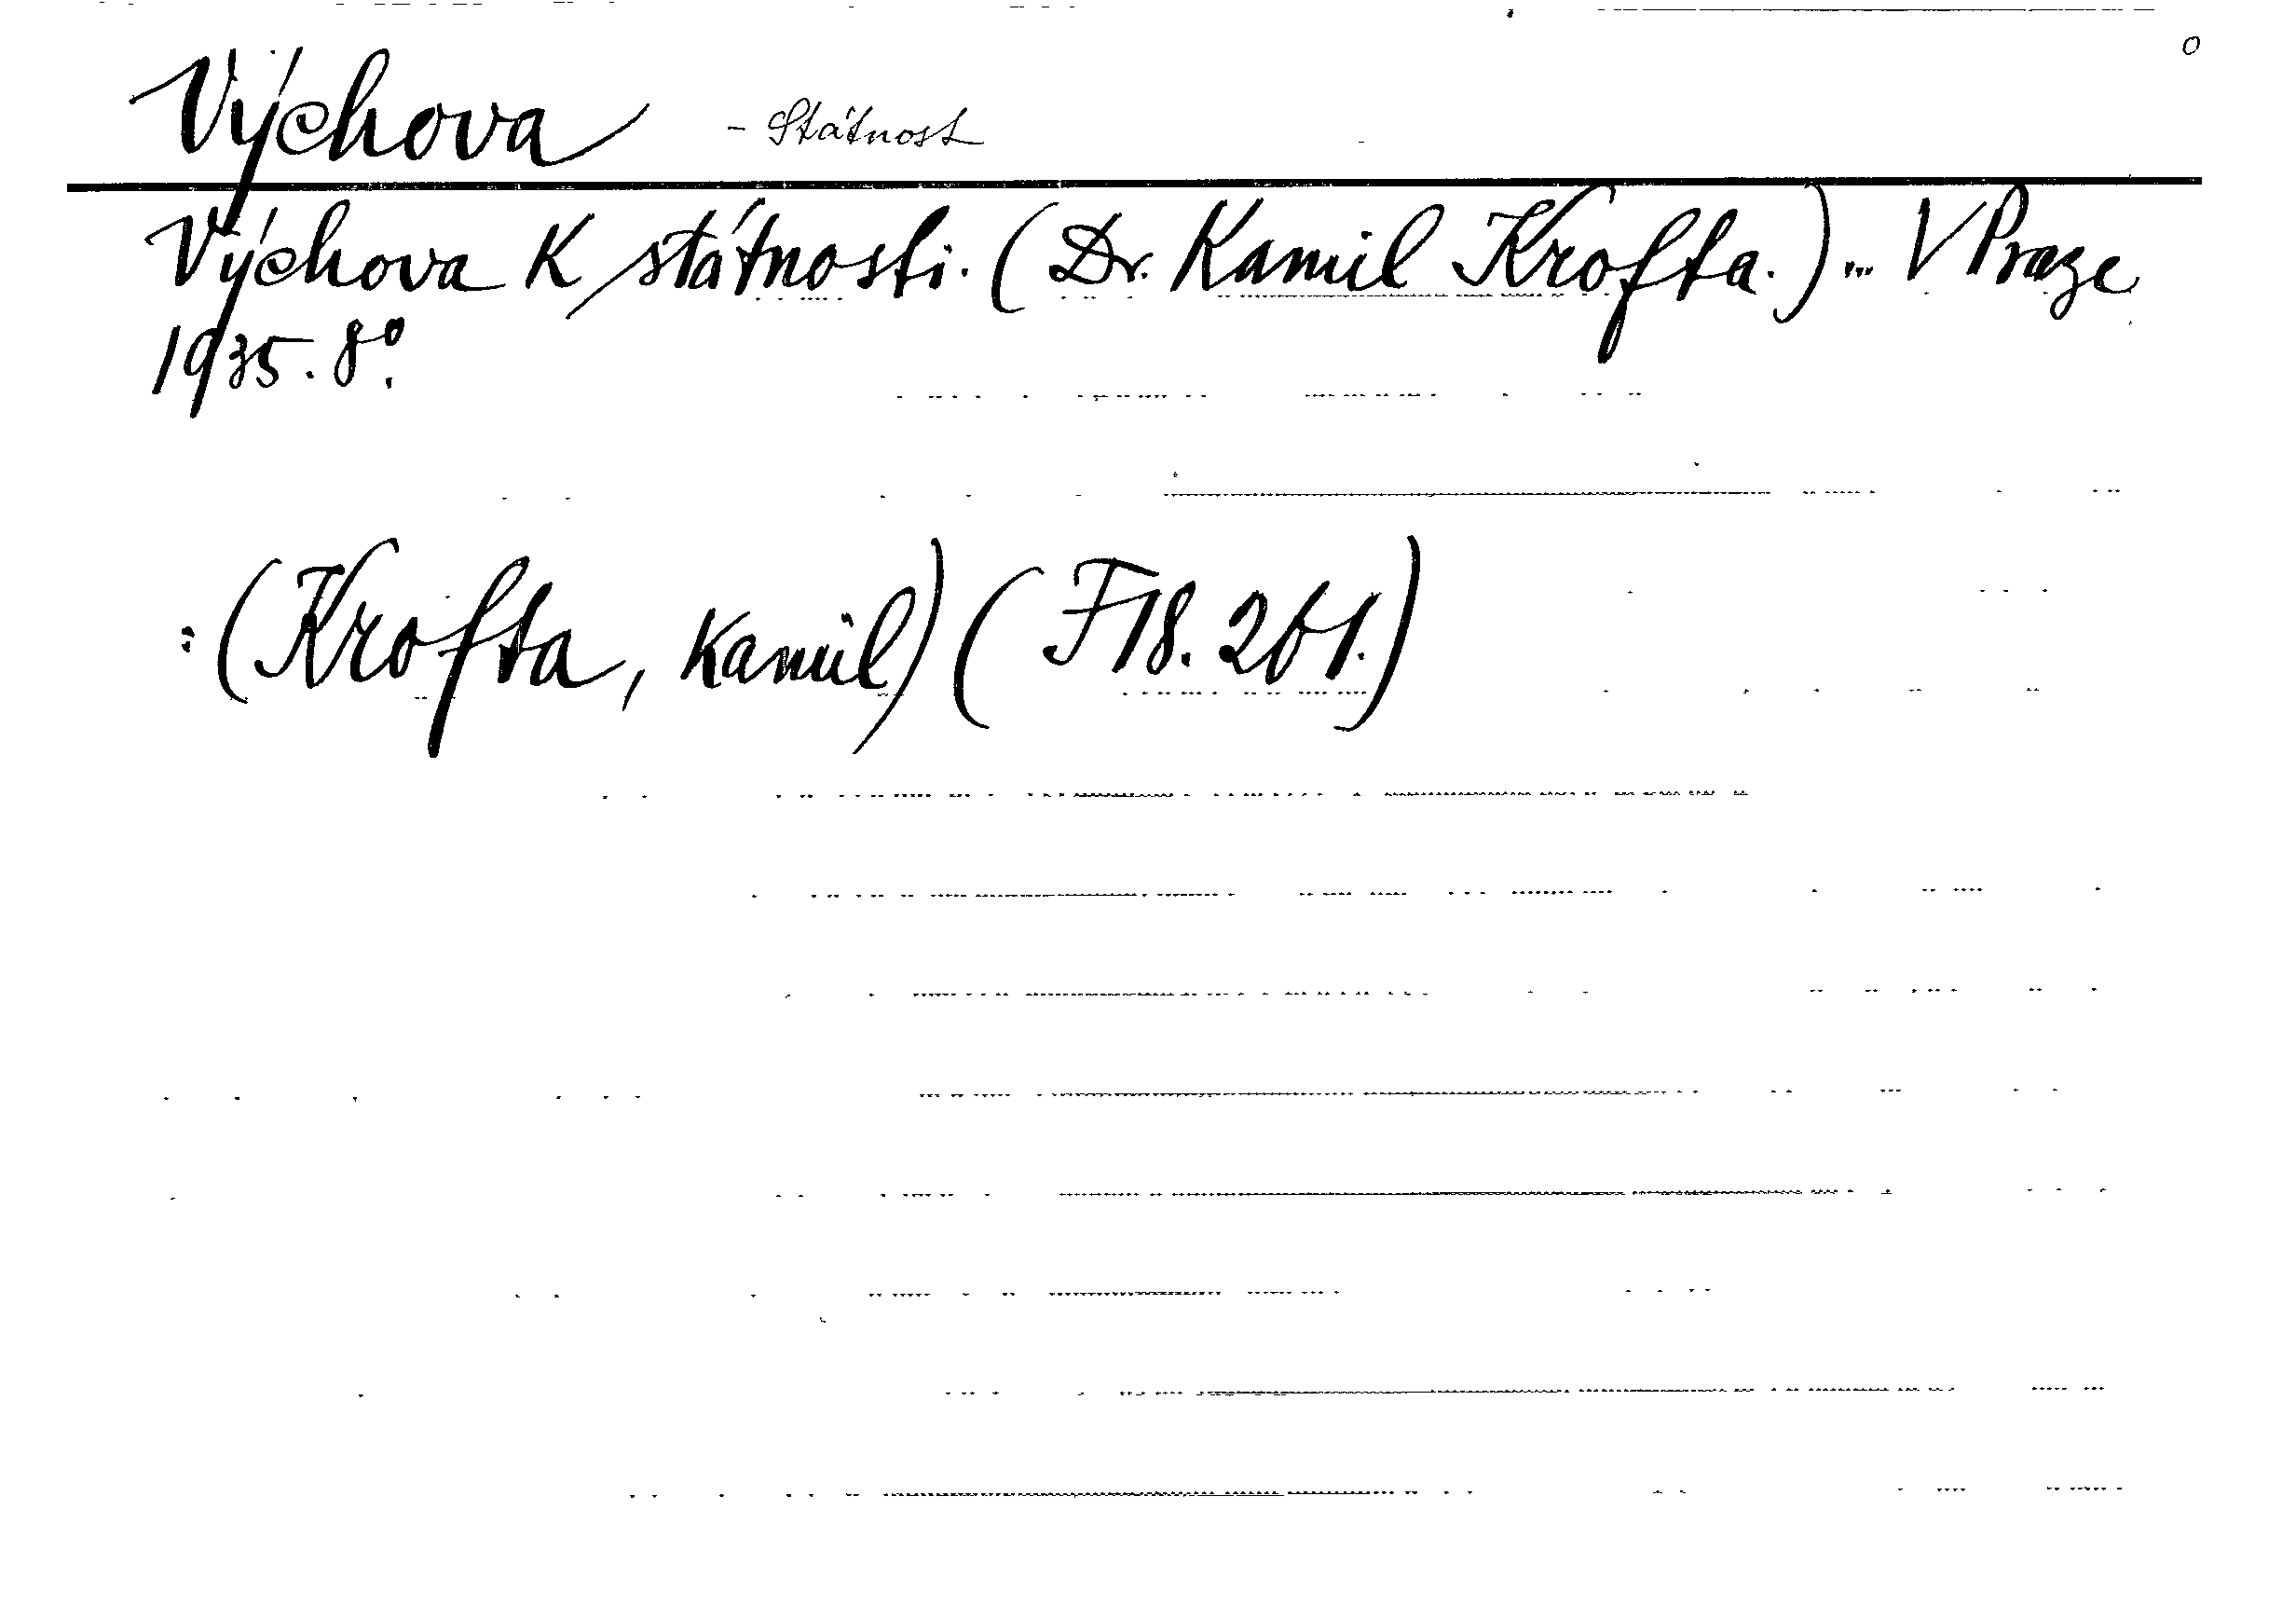 o
Výchova - Státnost
Výchova K státnosti. (Dr. Kamil Krofta.)... V Praze
1935. 8°.
: (Krofta, Kamil) (F18.261.)